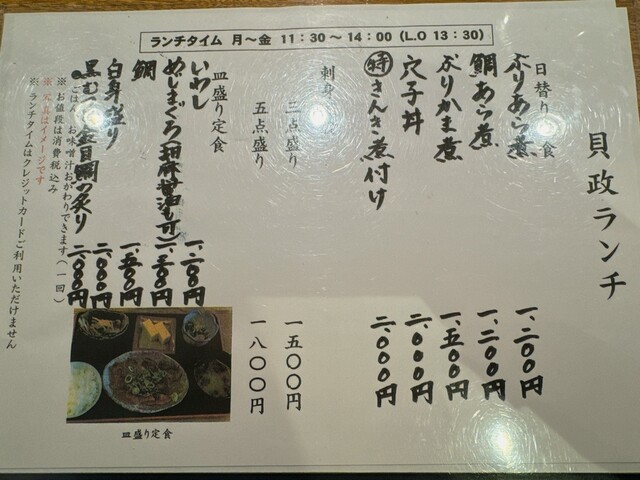 ランチタイム 月～金 11：30～14：00（L.O 13：30）
貝政ランチ
日替り定食
ぶりあら煮 一、二〇〇円
鯛あら煮 一、二〇〇円
ぶりかま煮 一、五〇〇円
穴子丼 二、〇〇〇円
㊕きんき煮付け 二、〇〇〇円
刺身
三点盛り 一五〇〇円
五点盛り 一八〇〇円
皿盛り定食
いわし 一、二〇〇円
めじまぐろ(胡麻醤油も可) 一、三〇〇円
鯛 一、五〇〇円
白身盛り 二、〇〇〇円
黒むつ 金目鯛の炙り 二、〇〇〇円
ごはん、お味噌汁おかわりできます（一回）
※ お値段は消費税込み
※ 写真はイメージです
※ ランチタイムはクレジットカードご利用いただけません
皿盛り定食